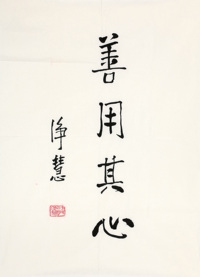 善用其心
净慧